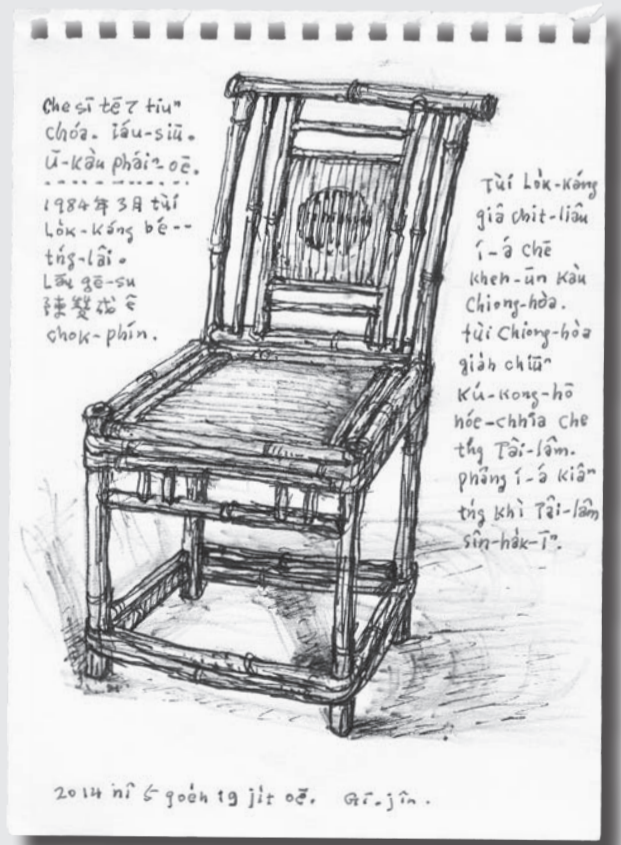 Che sī tē 7 tiuⁿ
chóa. iáu-siū.
Ū-kàu phái-ⁿ oē.
1984年3月 tùi
Lo̍k-káng bé--
tńg-lâi.
Lāu gē-su
陳雙成 ê
chok-phín.
Tùi Lo̍k-káng
giâ chit-liâu
í-á chē
khen-ún kàu
Chiong-hòa.
tùi Chiong-hòa
gia̍h chiūⁿ
Kú-kong-hō
hóe-chhia che
tńg Tâi-lâm.
phāng í-á kiâⁿ
tńg khì Tâi-lâm
sin-ha̍k-īⁿ.
2014 nî 5 goe̍h 19 ji̍t oē. Gī-jîn.